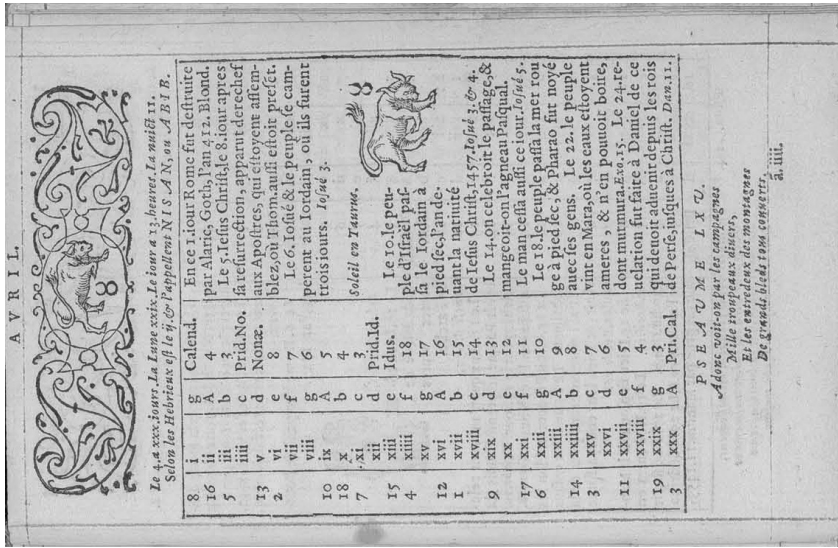 AVRIL.
Le 4. a xxx. iours, La Lune xxix. Le iour a 13. heures, La nuict 11.
Selon les Hebrieux est le ij. & l'appellent NISAN, ou ABIB.
8 i g Calend.
16 ii A 4
5 iii b 3
iiii c Prid.No.
13 v d Nonæ.
2 vi e 8
vii f 7
viii g 6
10 ix A 5
18 x b 4
7 xi c 3
xii d Prid.Id.
15 xiii e Idus.
4 xiiii f 18
xv g 17
12 xvi A 16
1 xvii b 15
xviii c 14
9 xix d 13
xx e 12
17 xxi f 11
6 xxii g 10
xxiii A 9
14 xxiiii b 8
3 xxv c 7
xxvi d 6
11 xxvii e 5
xxviii f 4
19 xxix g 3
3 xxx A Pri.Cal.
En ce 1. iour Rome fut destruite
par Alaric, Goth, l'an 412. Blond.
Le 5. Iesus Christ, le 8. iour apres
sa resurrection, apparut derechef
aux Apostres, qui estoyent assem-
blez, où Thom. aussi estoit presẽt.
Le 6. Iosué & le peuple se cam-
perent au Iordain, où ils furent
trois iours. Iosué 3.
Soleil en Taurus.
Le 10. le peu-
ple d'Israël pas-
sa le Iordain à
pied sec, l'an de-
uant la natiuité
de Iesus Christ, 1457. Iosué 3. & 4.
Le 14. on celebroit le passage, &
mangeoit-on l'agneau Pasqual.
Le man cessa aussi ce iour. Iosué 5.
Le 18. le peuple passa la mer rou
ge à pied sec, & Pharao fut noyé
auec ses gens. Le 22. le peuple
vint en Mara, où les eaux estoyent
ameres, & n'en pouuoit boire,
dont murmura. Exo. 15. Le 24. re-
uelation fut faite à Daniel de ce
qui deuoit aduenir depuis les rois
de Perse, iusques à Christ. Dan. 11.
PSEAVME LXV.
Adonc voit-on par les campagnes
Mille troupeaux diuers,
Et les entredeux des montagnes
De grands bleds tous couuerts.
ã. iiii.